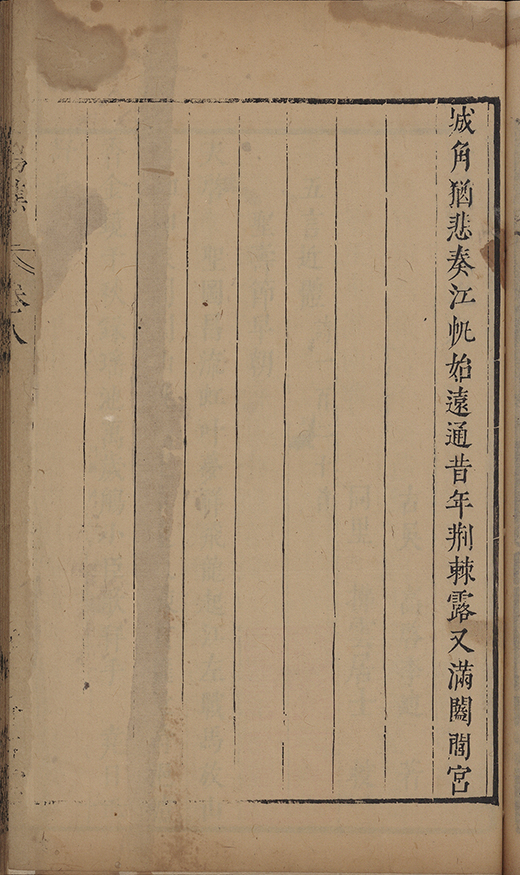 城角猶悲奏江帆始遠通昔年荆棘露又滿闔閭宮
集 卷八